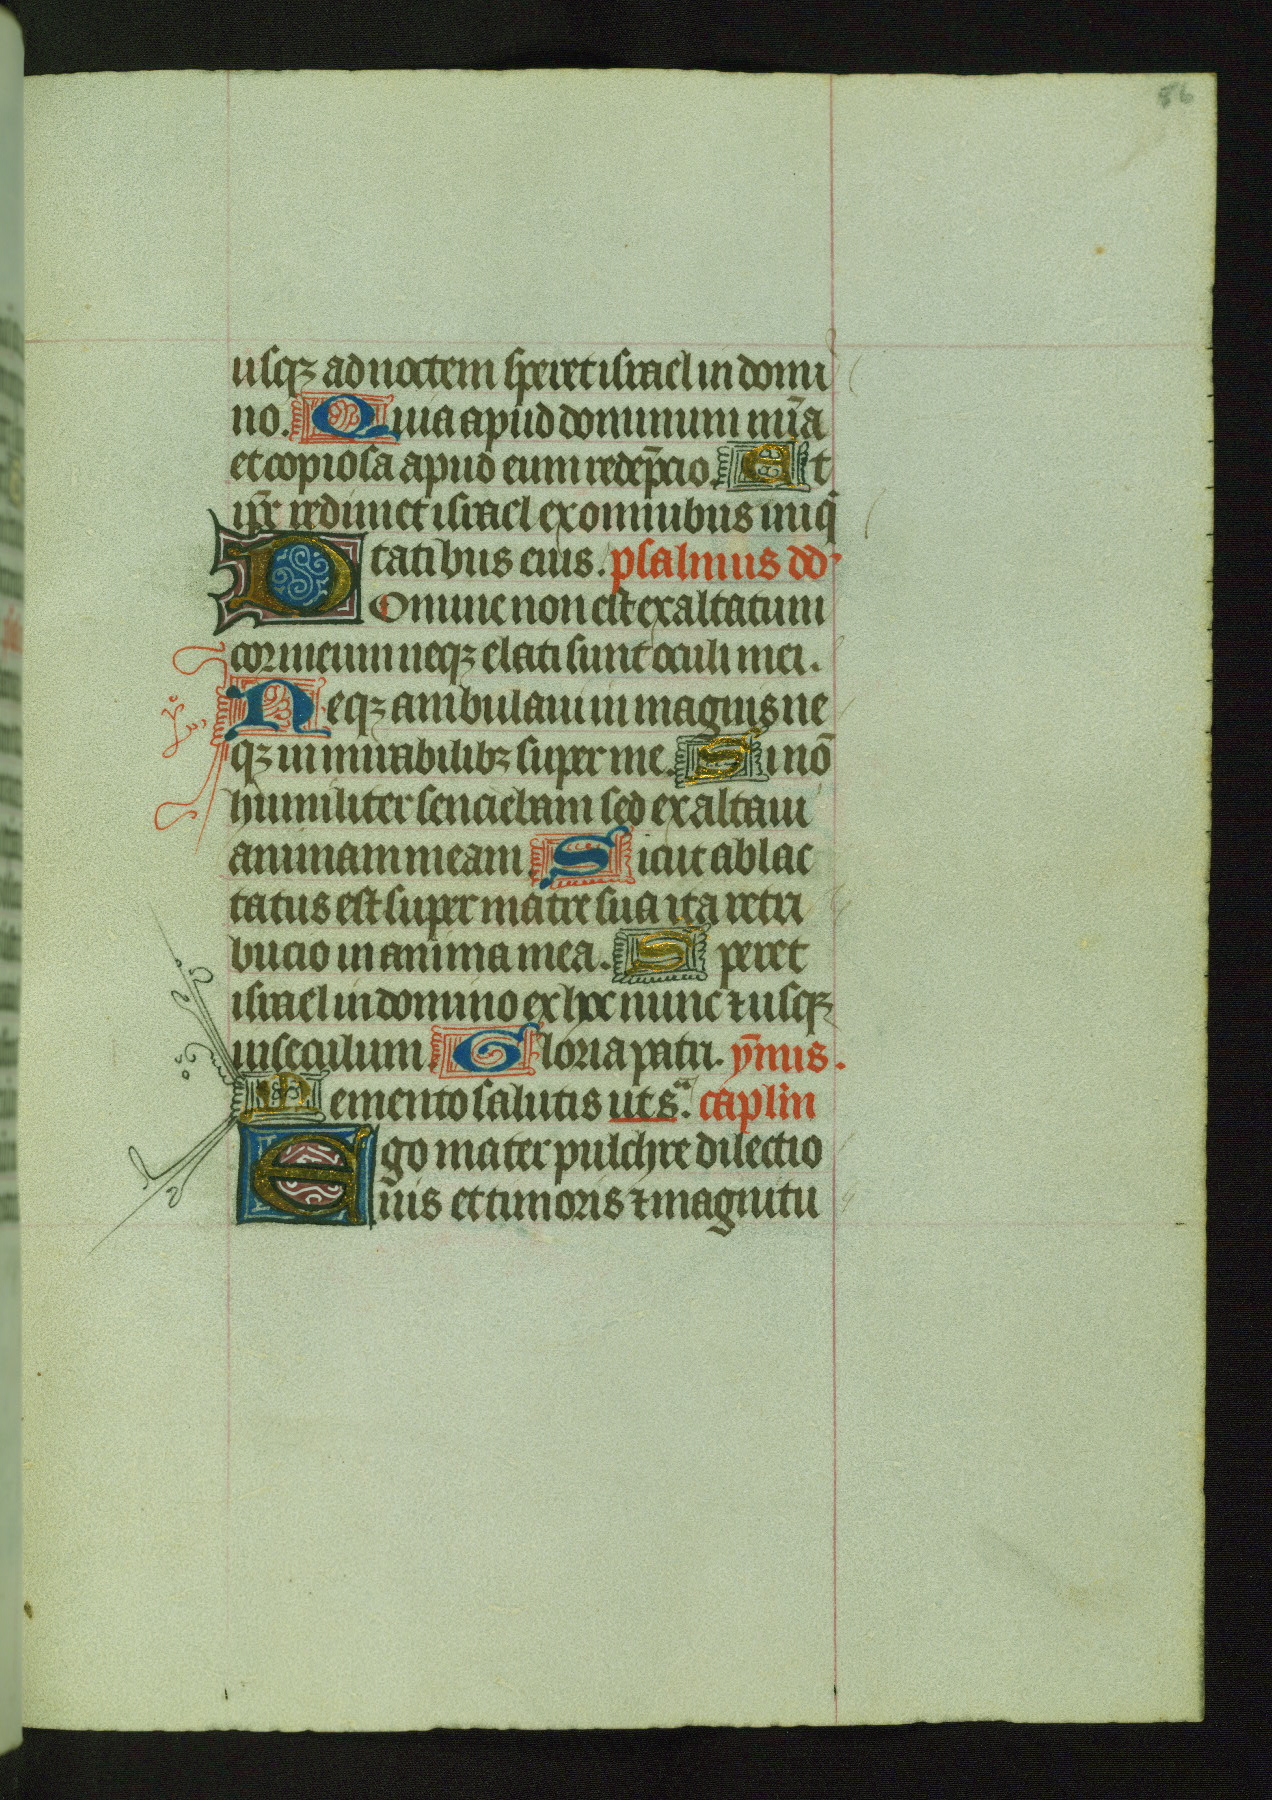 86
usqꝫ ad noctem speret israel in domi
no. Quia apud dominum mīa
et copiosa apud eum redēpcio. Et
ip̄e redimet israel ex omnibus iniq̄
tatibus eius. psalmus dd
Domine non est exaltatum
cor meum neqꝫ elati sunt oculi mei.
Neqꝫ ambulaui in magnis ne
qꝫ in mirabilibꝫ super me. Si nō
humiliter senciebam sed exaltaui
animam meam Sicut ablac
tatus est super matre sua ita retri
bucio in anima mea. Speret
israel in domino ex hoc nunc ⁊ usqꝫ
in seculum Gloria patri. ym̄us.
Memento salutis ut sᵃ. cap̄lm
Ego mater pulchre dilectio
nis et timoris ⁊ magnitu